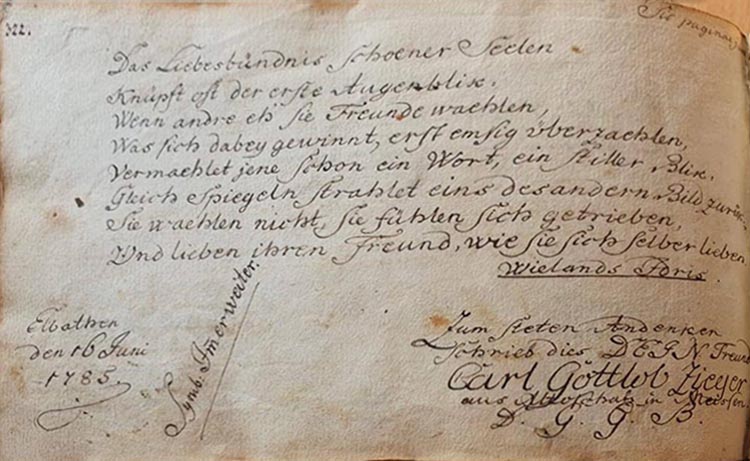 322.
Sie pagina
Das Liebesbündnis schoener Seelen
Knüpft oft der erste Augenblik.
Wenn andre eh' sie Freunde waehlen,
Was sich dabey gewinnt, erst emsig überzaehlen,
Vermaehlet jene schon ein Wort, ein stiller Blik.
Gleich Spiegeln strahlet eins des andern Bild zurük.
Sie waehlen nicht, sie fühlen sich getrieben,
Und lieben ihren Freund, wie sie sich selber lieben
Wielands Idris.
Elbathen
den 16 Juni
1785.
Symb. Im̅erweiter.
Zum steten Andenken
schrieb dies D E G N Freund
Carl Gottlob Zieger
aus in Meissen
D. G. G. B.